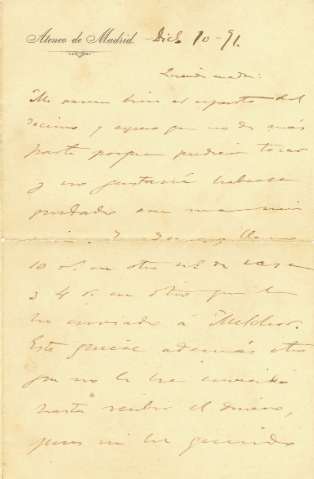 Ateneo de Madrid. Dicb 10-91.
Querida madre:
Me parece bien el reparto del
décimo y espero que no dé más
parte porque pudiera tocar
y no gustaría haberse
portado con
10 r. en otro nº de casa
3 4 r. en otro que le
he enviado á Melchor.
Este quiere además otro
que no le he enviado
hasta recibir el dinero,
pues ni he querido